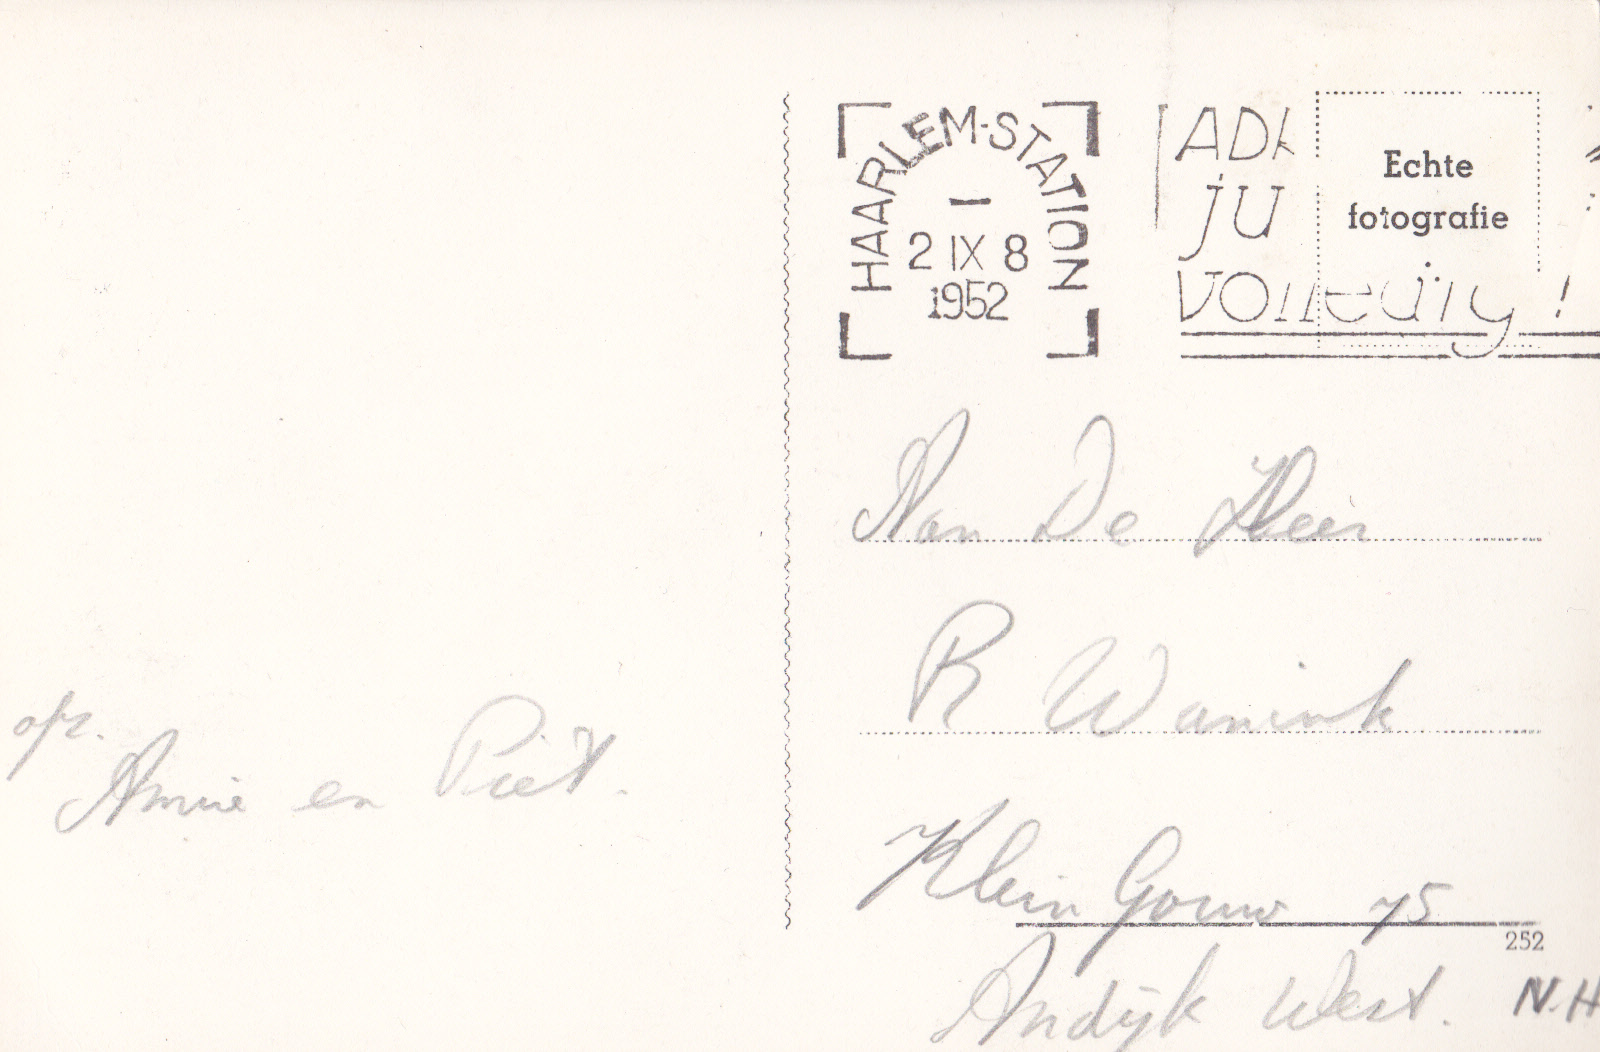 HAARLEM-STATION
2 IX 8
1952
ju
volledig!
Echte
fotografie
Aan De Heer
R Wanink
Klein Gouw 75
252
Andijk West. N.H
afz.
Annie en Piet.